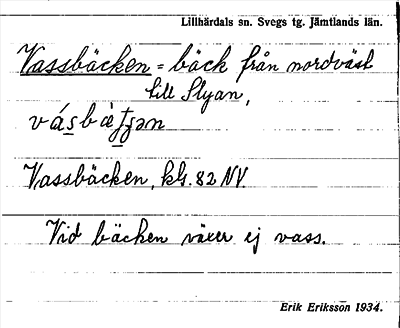 Lillhärdals sn. Svegs tg. Jämtlands län.
Vassbäcken = bäck från nordväst
till Slyan,
Vassbäcken, kbl. 82 NV.
Vid bäcken växer ej vass.
Erik Eriksson 1934.